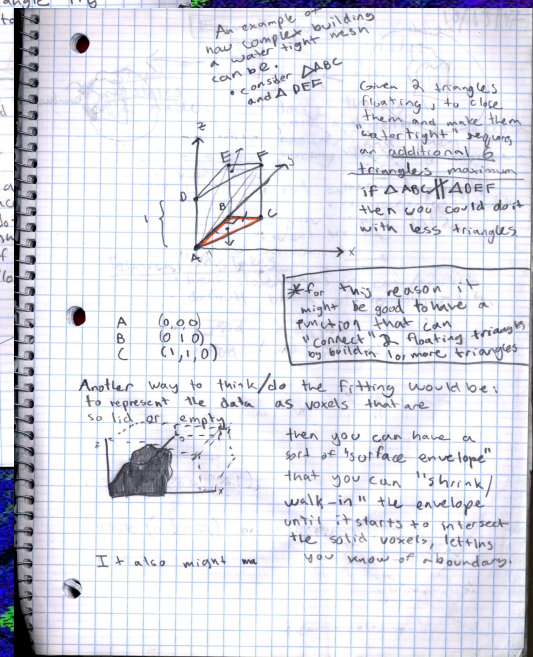 An example of
how complex building
a water tight mesh
can be.
• consider △ABC
and △ DEF
Given 2 triangles
floating, to close
them and make them
"watertight" requires
an additional 6
triangles maximum
if △ABC ∦ △DEF
then you could do it
with less triangles
z
E
F
y
D
B
C
1
A
x
*for this reason it
might be good to have a
function that can
"connect" 2 floating triangles
by buildin 1 or more triangles
A (0,0,0)
B (0 1 0)
C (1,1,0)
Another way to think/do the fitting would be:
to represent the data as voxels that are
so lid or empty
z
x
then you can have a
sort of "surface envelope"
that you can "shrink/
walk-in" the envelope
until it starts to intersect
the solid voxels, letting
you know of a boundary.
It also might ma